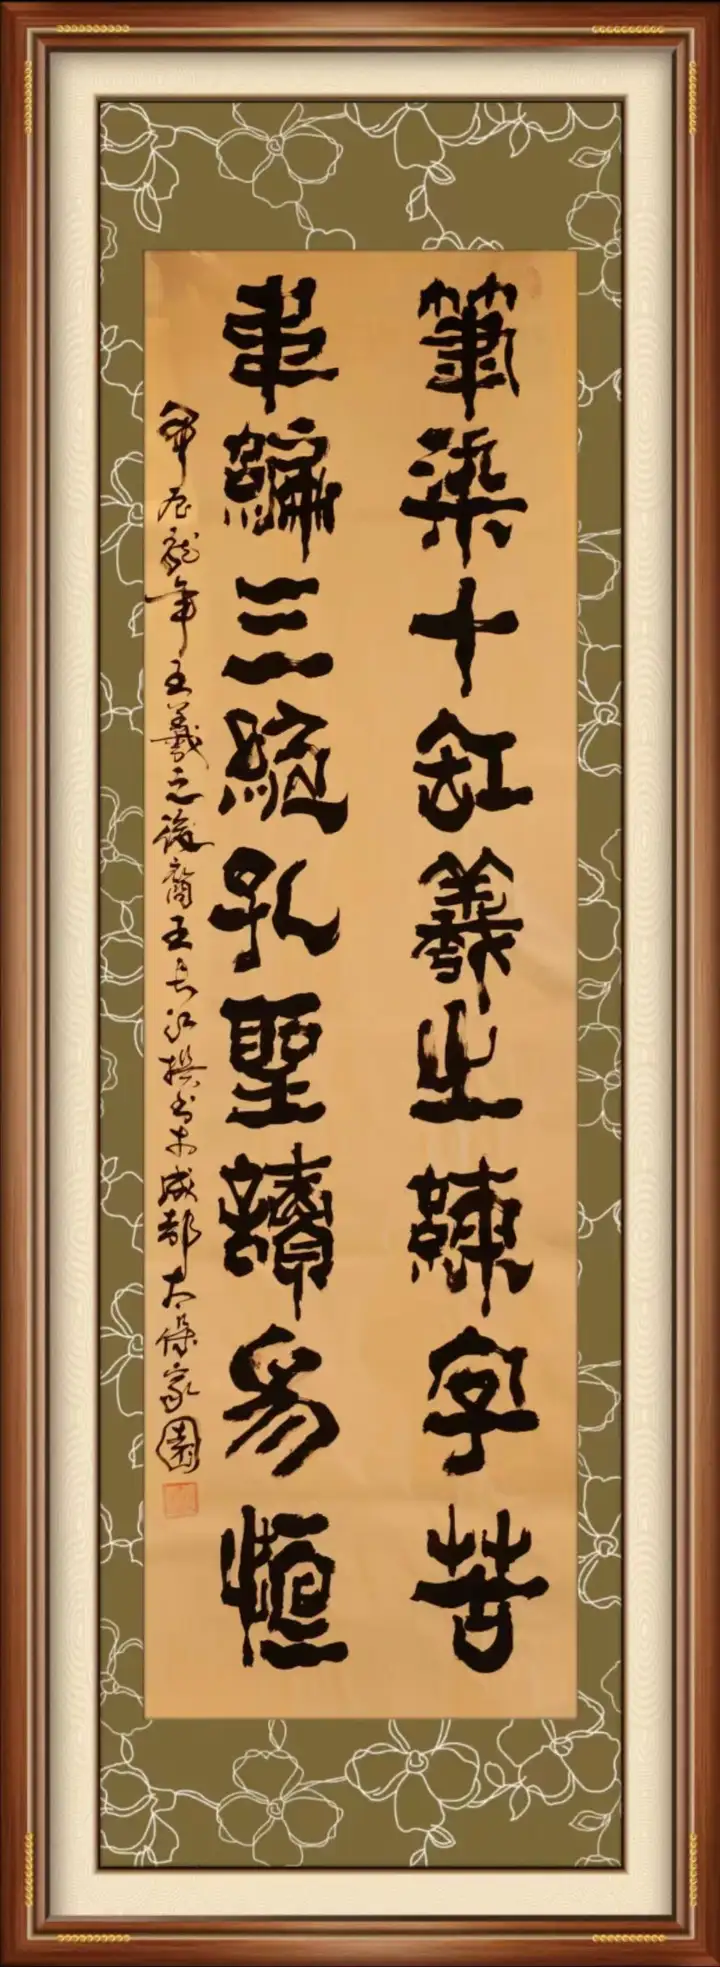 筆染十缸羲之練字苦
韋編三絕孔聖讀易恒
甲辰龍年王羲之後裔王长江撰书於成都太保家園